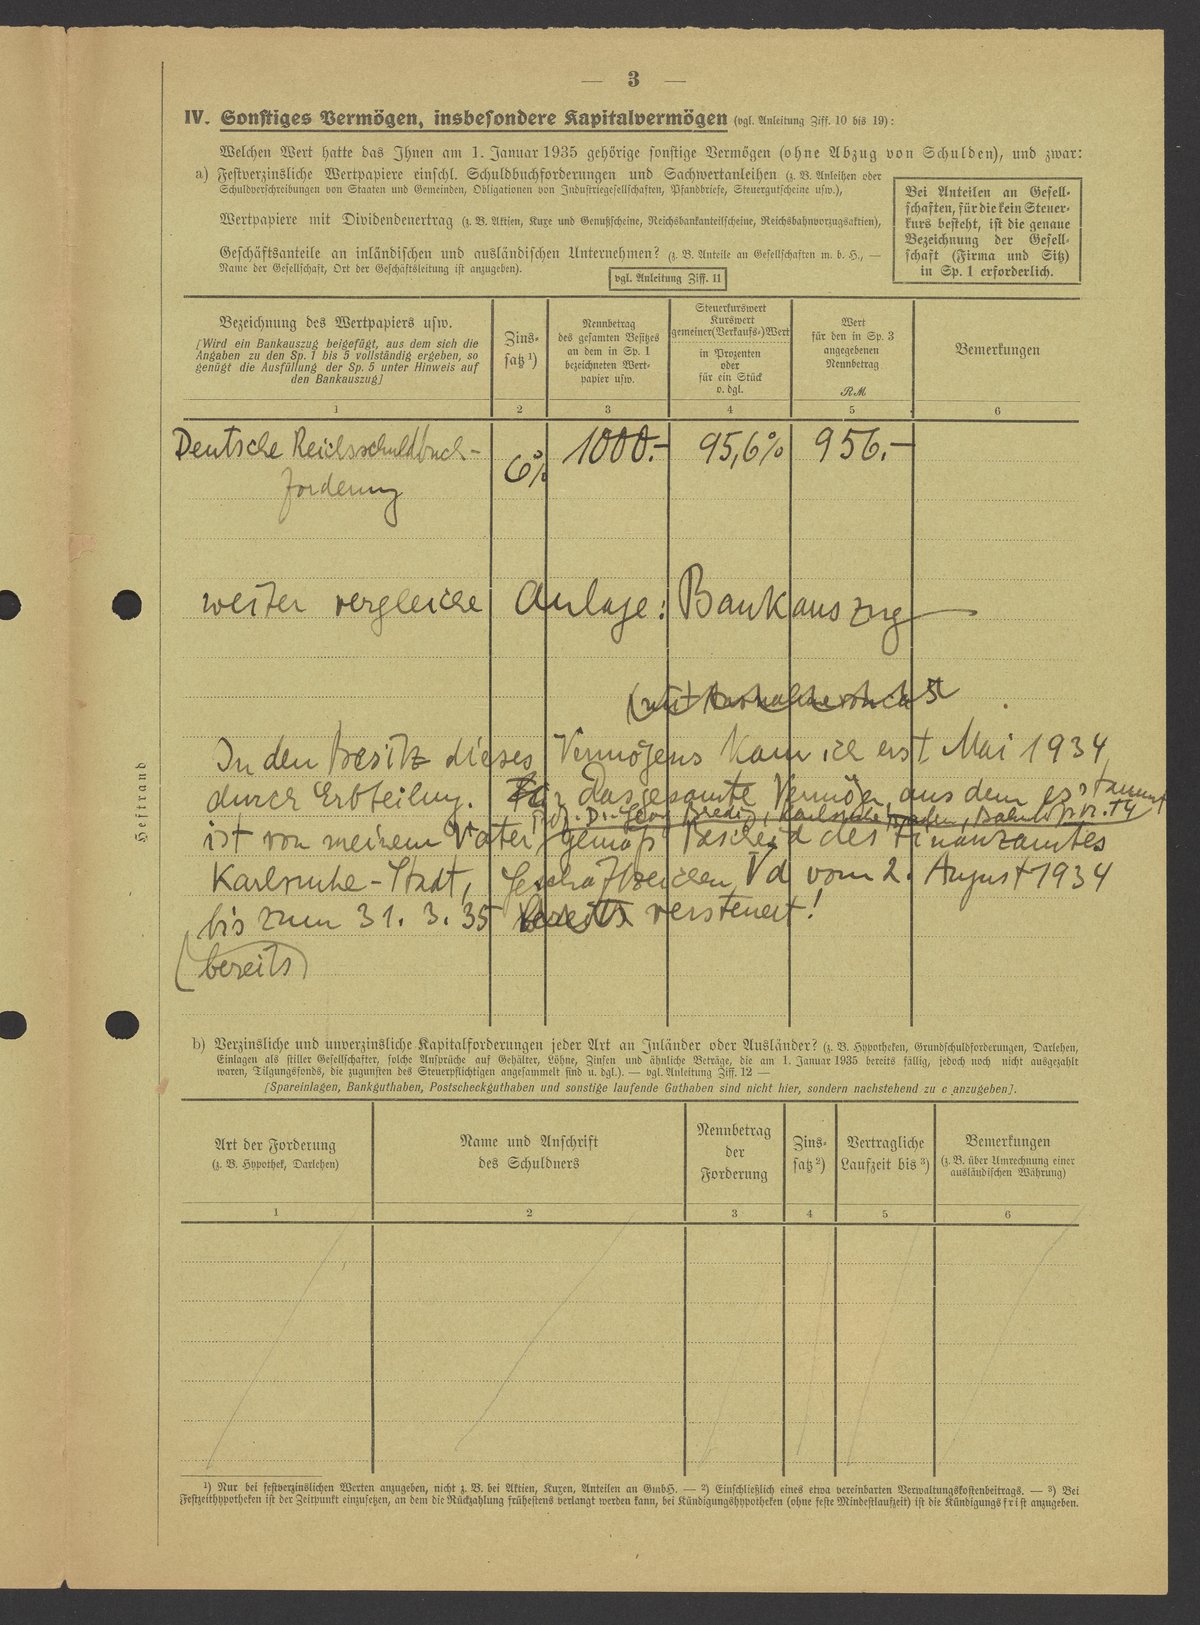 — 3 —
IV. Sonstiges Vermögen, insbesondere Kapitalvermögen (vgl. Anleitung Ziff. 10 bis 19):
Welchen Wert hatte das Ihnen am 1. Januar 1935 gehörige sonstige Vermögen (ohne Abzug von Schulden), und zwar:
a) Festverzinsliche Wertpapiere einschl. Schuldbuchforderungen und Sachwertanleihen (z. B. Anleihen oder
Schuldverschreibungen von Staaten und Gemeinden, Obligationen von Industriegesellschaften, Pfandbriefe, Steuergutscheine usw.),
Wertpapiere mit Dividendenertrag (z. B. Aktien, Kuxe und Genußscheine, Reichsbankanteilscheine, Reichsbahnvorzugsaktien),
Geschäftsanteile an inländischen und ausländischen Unternehmen? (z. B. Anteile an Gesellschaften m. b. H., —
Name der Gesellschaft, Ort der Geschäftsleitung ist anzugeben).
vgl. Anleitung Ziff. 11
Bei Anteilen an Gesell-
schaften, für die kein Steuer-
kurs besteht, ist die genaue
Bezeichnung der Gesell-
schaft (Firma und Sitz)
in Sp. 1 erforderlich.
Bezeichnung des Wertpapiers usw.
[Wird ein Bankauszug beigefügt, aus dem sich die
Angaben zu den Sp. 1 bis 5 vollständig ergeben, so
genügt die Ausfüllung der Sp. 5 unter Hinweis auf
den Bankauszug]
Zins-
satz ¹)
Nennbetrag
des gesamten Besitzes
an dem in Sp. 1
bezeichneten Wert-
papier usw.
Steuerkurswert
Kurswert
gemeiner (Verkaufs-)Wert
in Prozenten
oder
für ein Stück
o. dgl.
Wert
für den in Sp. 3
angegebenen
Nennbetrag
RM
Bemerkungen
1 2 3 4 5 6
Deutsche Reichsschuldbuch- 6% 1000.- 95,6% 956.-
forderung
weiter vergleiche Anlage: Bankauszug
In den Besitz dieses Vermögens kam ich erst Mai 1934
durch Erbteilung. Das gesamte Vermögen, aus dem es stammt
Karlsruhe Baden, Bahnhofstr. 14
ist von meinem Vater gemäß Bescheid des Finanzamtes
Karlsruhe-Stadt, Geschäftszeichen Vd vom 2. August 1934
bis zum 31. 3. 35 bereits versteuert!
(bereits)
Heftrand
b) Verzinsliche und unverzinsliche Kapitalforderungen jeder Art an Inländer oder Ausländer? (z. B. Hypotheken, Grundschuldforderungen, Darlehen,
Einlagen als stiller Gesellschafter, solche Ansprüche auf Gehälter, Löhne, Zinsen und ähnliche Beträge, die am 1. Januar 1935 bereits fällig, jedoch noch nicht ausgezahlt
waren, Tilgungsfonds, die zugunsten des Steuerpflichtigen angesammelt sind u. dgl.). — vgl. Anleitung Ziff. 12 —
[Spareinlagen, Bankguthaben, Postscheckguthaben und sonstige laufende Guthaben sind nicht hier, sondern nachstehend zu c anzugeben].
Art der Forderung
(z. B. Hypothek, Darlehen)
Name und Anschrift
des Schuldners
Nennbetrag
der
Forderung
Zins-
satz ²)
Vertragliche
Laufzeit bis ³)
Bemerkungen
(z. B. über Umrechnung einer
ausländischen Währung)
1 2 3 4 5 6
¹) Nur bei festverzinslichen Werten anzugeben, nicht z. B. bei Aktien, Kuxen, Anteilen an GmbH. — ²) Einschließlich eines etwa vereinbarten Verwaltungskostenbeitrags. — ³) Bei
Festzeithypotheken ist der Zeitpunkt einzusetzen, an dem die Rückzahlung frühestens verlangt werden kann, bei Kündigungshypotheken (ohne feste Mindestlaufzeit) ist die Kündigungsfrist anzugeben.